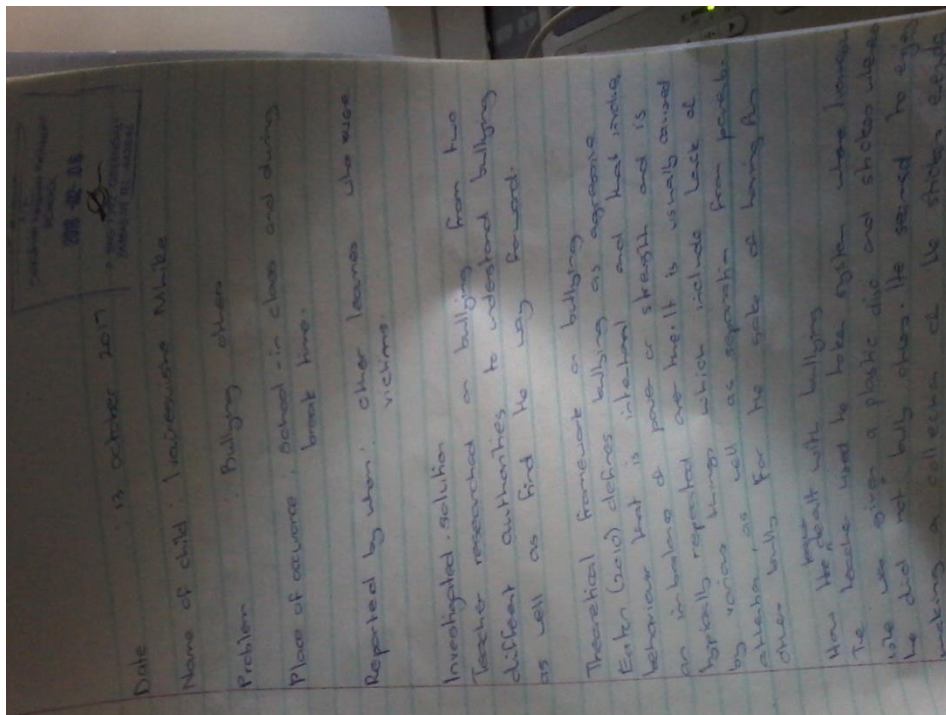 2018 -02- 08
Date : 13 October 2017
Name of child : Ivainesushe Mhike
Problem : Bullying others
Place of occurence : School - in class and during
break time.
Reported by whom : other learners who were
victims.
Investigated solution
Teacher researched on bullying from two
different authorities to understand bullying
as well as find the way foward.
Theoretical framework on bullying
(2010) defines bullying as agressive
behaviour that is intentional and that involve
an imbalance of power or strenght and is
typically repeated over time. It is usually caused
by various things which include lack of
attention, as well as seperation from parents.
Other bully for the sake of having fun.
How the boy dealt with bullying
The teacher used the token system where
he was given a plastic disc and stickes when
he did not bully others. He seemed to enjoy
making a collection of the sticker